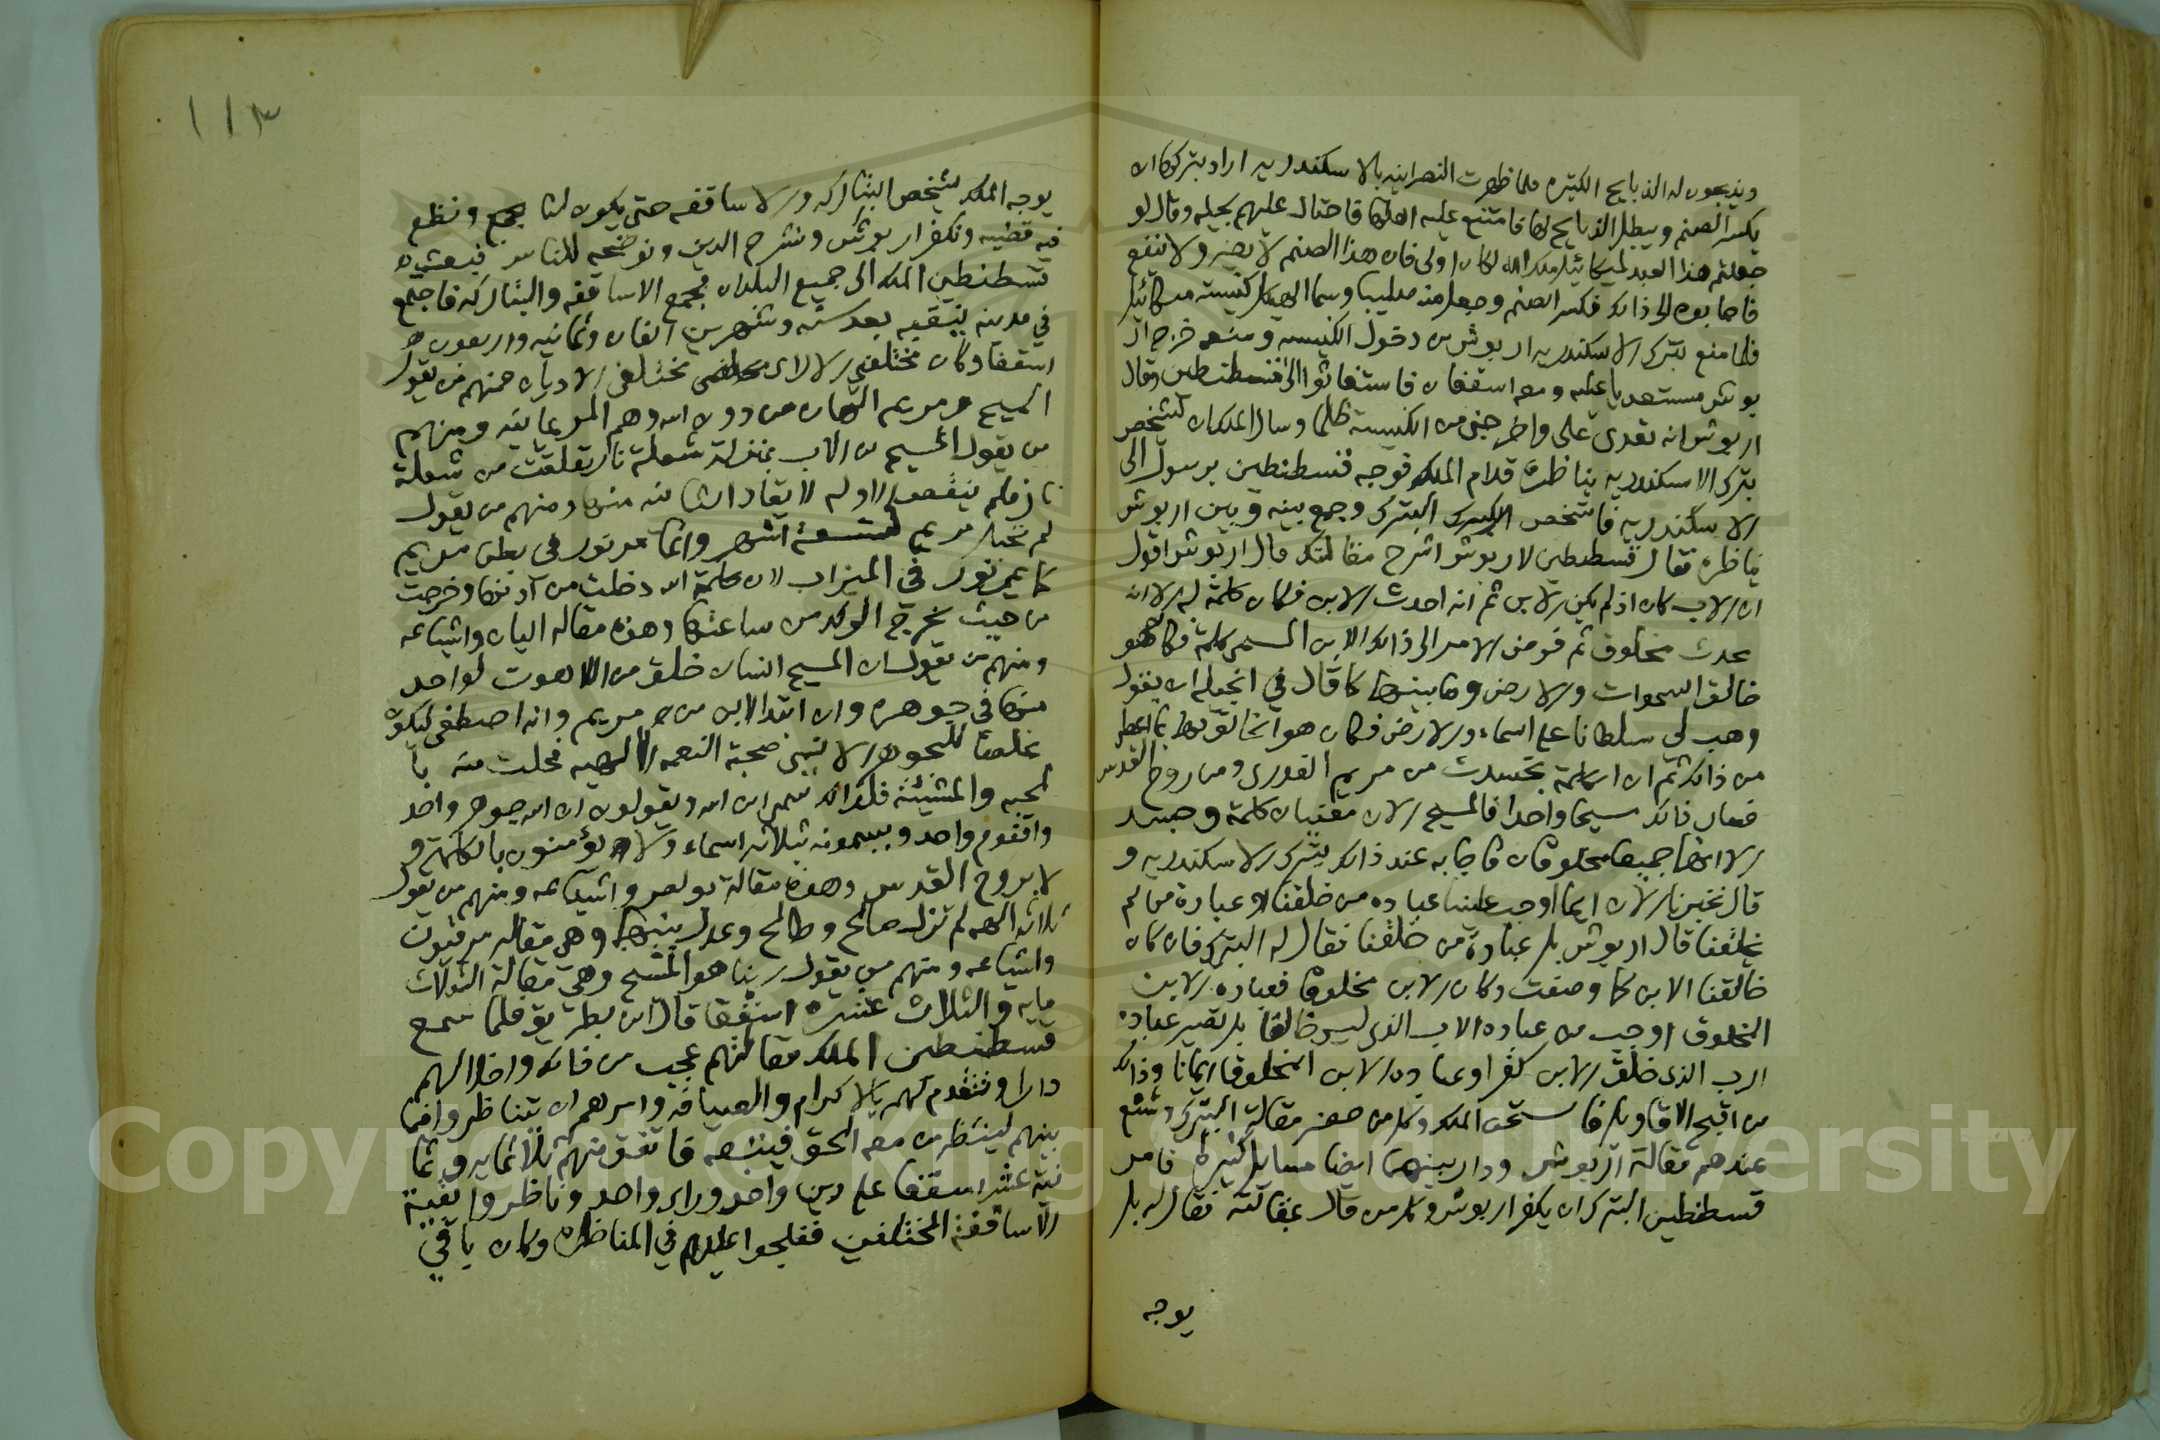 ويذبحون له الذبايح الكثيره فلما ظهرت النصرانيه بالاسكندريه اراد بتركها ان
يكسر الصنم ويبطل الذبايح لها فامتنع عليه اهلها فاحتال عليهم بحيله وقال لو
جعلتم هذا العيد لميكائيل ملك الله لكان اولى فان هذا الصنم لا يضر ولا ينفع
فاجابوه الى ذالك فكسر الصنم وجعل منه صليبا وسما الهيكل كنيسة ميكائيل
فلما منع بترك الاسكندريه اريوش من دخول الكنيسه ومنعه خرج ار
يوش مستعديا عليه ومعه اسقفان فاستغاثوا الى قسطنطين وقال
اريوش انه تعدى علي واخرجني من الكنيسة ظلما وسال الملك ان يشخص
بترك الاسكندريه يناظره قدام الملك فوجه قسطنطين برسول الى
الاسكندريه فاشخص البترك وجمع بينه وبين اريوش
يناظره فقال قسطنطين لاريوش اشرح مقالتك قال اريوش اقول
ان الاب كان اذ لم يكن الابن ثم انه احدث الابن فكان كلمة له الا انه
محدث مخلوق ثم فوض الامر الى ذالك الابن المسمى كلمة فكان هو
خالق السموات والارض وما بينهما كما قال في انجيله ان يقول
وهب لي سلطانا على السماء والارض فكان هو الخالق لهما بما اعطى
من ذالك ثم ان الكلمة تجسدت من مريم العذرى ومن روح القدس
فصار ذالك مسيحا واحدا فالمسيح الان معنيان كلمة وجسد
الا انهما جميعا مخلوقان فاجابه عند ذالك بترك الاسكندريه و
قال تخبرنا الان ايما اوجب علينا عباده من خلقنا او عبادة من لم
يخلقنا قال اريوش بل عبادة من خلقنا فقال له البترك فان كان
خالقنا الابن كما وصفت وكان الابن مخلوقا فعباده الابن
المخلوق اوجب من عباده الاب الذي ليس خالقا بل تصير عباده
الرب الذي خلق الابن كفرا وعباده الابن المخلوق ايمانا وذالك
من اقبح الاقاويل فاستحسن الملك وكل من حضر مقالة البترك وشنع
عندهم مقالة اريوش ودار بينهما ايضا مسايل كثيرة فامر
قسطنطين البترك ان يكفر اريوش وكل من قال بمقالته فقال له بل
يوجه
١١٣
يوجه الملك يشخص البتاركه والاساقفه حتى يكون لنا مجمع ونضع
فيه قضيه ونكفر اريوش ونشرح الدين ونوضحه للناس فبعث
قسطنطين الملك الى جميع البلدان فجمع الاساقفه والبتاركه فاجتمع
في مدينه نيقيه بعد سنه وشهرين الفان وثمانيه واربعون
اسقفا وكان مختلفي الاراء مختلفي الاديان فمنهم من يقول
المسيح ومريم الاهان من دون الله وهم المريمانيه ومنهم
من يقول المسيح من الاب بمنزلة شعلة نار تعلقت من شعلة
نار فلم ينقص الاوله لايقاد الثانيه منها ومنهم من يقول
لم تحبل مريم لتسعة اشهر وانما مر نور في بطن مريم
كما يمر نور في الميزاب لان كلمة الله دخلت من اذنها وخرجت
من حيث يخرج الولد من ساعتها وهذه مقاله اليان واشياعه
ومنهم من يقول ان المسيح انسان خلق من اللاهوت كواحد
منا في جوهره وان ابتدا الابن من مريم وانه اصطفى ليكون
مخلصا للجوهر الانسي صحبة النعمه الالهيه فحلت منه با
لمحبه والمشيئة فلذالك سمي ابن الله ويقولون ان الله جوهر واحد
واقنوم واحد ويسمونه بثلاثه اسماء ولا يؤمنون بالكلمة و
لا بروح القدس وهذه مقالة بولص واشياعه ومنهم من يقول
ثلاثه الهه لم تزل صالح وطالح وعدل بينهما وهي مقاله مرقيون
واشياعه ومنهم من يقول ربنا هو المسيح وهي مقالة الثلاث
مايه والثلاث عشره اسقفا قال ابن بطريق فلما سمع
قسطنطين الملك مقالتهم عجب من ذالك واخلا لهم
دارا وتقدم لهم بالاكرام والضيافه وامرهم ان يتناظروا فيما
بينهم لينظر من معه الحق فيتبعه فاتفق منهم ثلاثمايه وثما
نية عشر اسقفا على دين واحد وراي واحد وناظروا بقية
الاساقفة المختلفين ففلجوا عليهم في المناظره وكان باقي